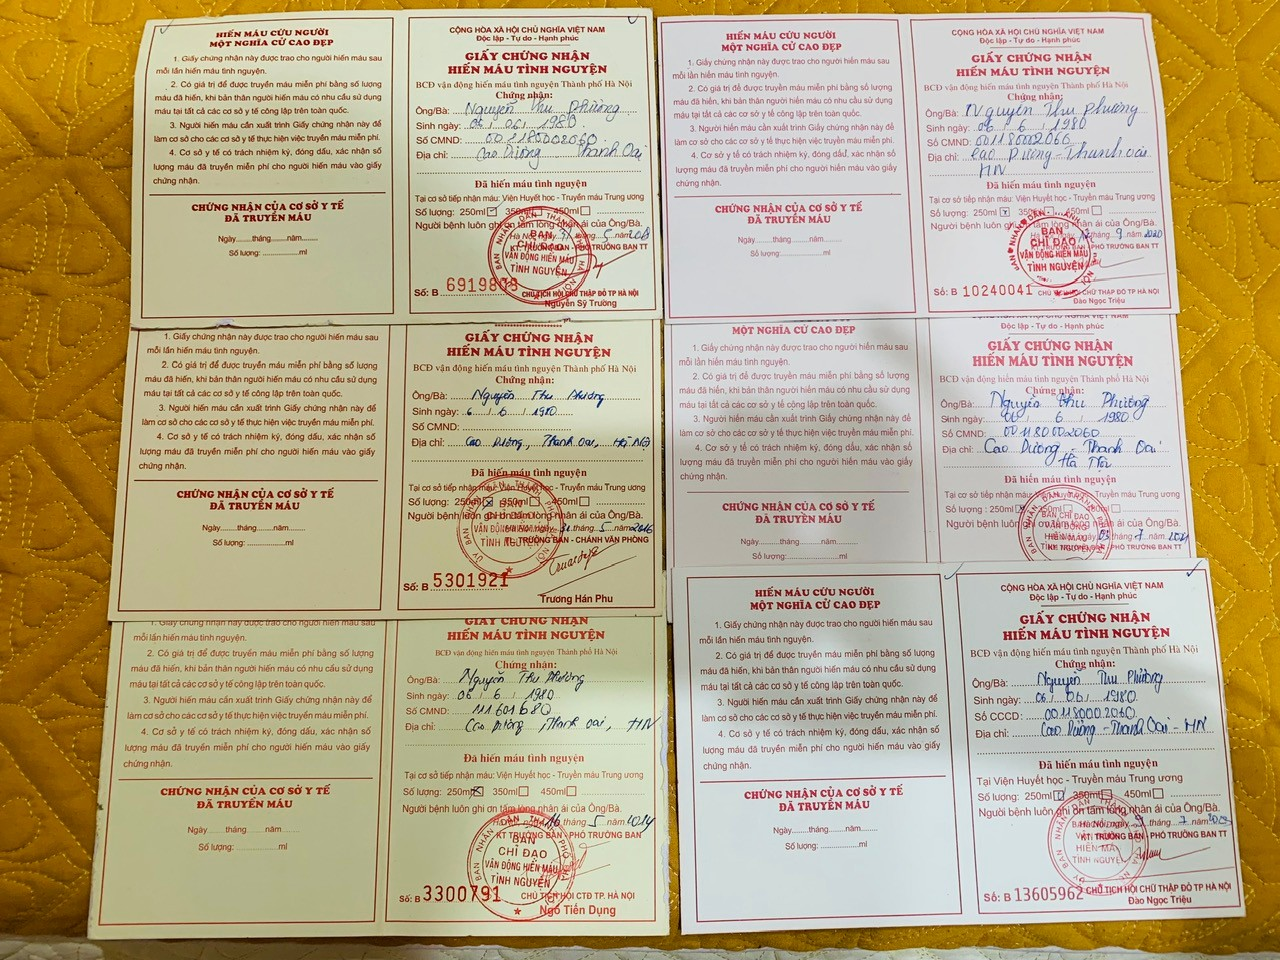 HIẾN MÁU CỨU NGƯỜI
MỘT NGHĨA CỬ CAO ĐẸP
1. Giấy chứng nhận này được trao cho người hiến máu sau
mỗi lần hiến máu tình nguyện.
2. Có giá trị để được truyền máu miễn phí bằng số lượng
máu đã hiến, khi bản thân người hiến máu có nhu cầu sử dụng
máu tại tất cả các cơ sở y tế công lập trên toàn quốc.
3. Người hiến máu cần xuất trình Giấy chứng nhận này để
làm cơ sở cho các cơ sở y tế thực hiện việc truyền máu miễn phí.
4. Cơ sở y tế có trách nhiệm ký, đóng dấu, xác nhận số
lượng máu đã truyền miễn phí cho người hiến máu vào giấy
chứng nhận.
CHỨNG NHẬN CỦA CƠ SỞ Y TẾ
ĐÃ TRUYỀN MÁU
Ngày......tháng.........năm........
Số lượng: ....................ml
CỘNG HÒA XÃ HỘI CHỦ NGHĨA VIỆT NAM
Độc lập - Tự do - Hạnh phúc
GIẤY CHỨNG NHẬN
HIẾN MÁU TÌNH NGUYỆN
BCĐ vận động hiến máu tình nguyện Thành phố Hà Nội
Chứng nhận:
Ông/Bà: Nguyễn Thu Phương
Sinh ngày: 06 / 06 / 1980
Số CMND: 001180002060
Địa chỉ: Cao Dương Thanh Oai
Đã hiến máu tình nguyện
Tại cơ sở tiếp nhận máu: Viện Huyết học - Truyền máu Trung ương
Số lượng: 250ml 350ml 450ml
Người bệnh luôn ghi ơn tấm lòng nhân ái của Ông/Bà.
Hà Nội, tháng 5 năm
KT. TRƯỞNG BAN - PHÓ TRƯỞNG BAN TT
BAN
CHỈ ĐẠO
VẬN ĐỘNG HIẾN MÁU
TÌNH NGUYỆN
Số: B
CHỦ TỊCH HỘI CHỮ THẬP ĐỎ TP HÀ NỘI
Nguyễn Sỹ Trường
HIẾN MÁU CỨU NGƯỜI
MỘT NGHĨA CỬ CAO ĐẸP
1. Giấy chứng nhận này được trao cho người hiến máu sau
mỗi lần hiến máu tình nguyện.
2. Có giá trị để được truyền máu miễn phí bằng số lượng
máu đã hiến, khi bản thân người hiến máu có nhu cầu sử dụng
máu tại tất cả các cơ sở y tế công lập trên toàn quốc.
3. Người hiến máu cần xuất trình Giấy chứng nhận này để
làm cơ sở cho các cơ sở y tế thực hiện việc truyền máu miễn phí.
4. Cơ sở y tế có trách nhiệm ký, đóng dấu, xác nhận số
lượng máu đã truyền miễn phí cho người hiến máu vào giấy
chứng nhận.
CHỨNG NHẬN CỦA CƠ SỞ Y TẾ
ĐÃ TRUYỀN MÁU
Ngày......tháng.........năm........
Số lượng: ....................ml
CỘNG HÒA XÃ HỘI CHỦ NGHĨA VIỆT NAM
Độc lập - Tự do - Hạnh phúc
GIẤY CHỨNG NHẬN
HIẾN MÁU TÌNH NGUYỆN
BCĐ vận động hiến máu tình nguyện Thành phố Hà Nội
Chứng nhận:
Ông/Bà: Nguyễn Thu Phương
Sinh ngày: 06 / 6 / 1980
Số CMND:
Địa chỉ: Cao Dương - Thanh Oai
HN
Đã hiến máu tình nguyện
Tại cơ sở tiếp nhận máu: Viện Huyết học - Truyền máu Trung ương
Số lượng: 250ml 350ml 450ml
Người bệnh luôn ghi ơn tấm lòng nhân ái của Ông/Bà.
tháng 9 năm 2020
PHÓ TRƯỞNG BAN TT
BAN
CHỈ ĐẠO
VẬN ĐỘNG HIẾN MÁU
TÌNH NGUYỆN
Số: B 10240041
CHỦ TỊCH HỘI CHỮ THẬP ĐỎ TP HÀ NỘI
Đào Ngọc Triệu
1. Giấy chứng nhận này được trao cho người hiến máu sau
mỗi lần hiến máu tình nguyện.
2. Có giá trị để được truyền máu miễn phí bằng số lượng
máu đã hiến, khi bản thân người hiến máu có nhu cầu sử dụng
máu tại tất cả các cơ sở y tế công lập trên toàn quốc.
3. Người hiến máu cần xuất trình Giấy chứng nhận này để
làm cơ sở cho các cơ sở y tế thực hiện việc truyền máu miễn phí.
4. Cơ sở y tế có trách nhiệm ký, đóng dấu, xác nhận số
lượng máu đã truyền miễn phí cho người hiến máu vào giấy
chứng nhận.
CHỨNG NHẬN CỦA CƠ SỞ Y TẾ
ĐÃ TRUYỀN MÁU
Ngày......tháng.........năm........
Số lượng: ....................ml
GIẤY CHỨNG NHẬN
HIẾN MÁU TÌNH NGUYỆN
BCĐ vận động hiến máu tình nguyện Thành phố Hà Nội
Chứng nhận:
Ông/Bà: Nguyễn Thu Phương
Sinh ngày: 6 / 6 / 1980
Số CMND:
Địa chỉ: Cao Dương, Thanh Oai, Hà Nội
Đã hiến máu tình nguyện
Tại cơ sở tiếp nhận máu: Viện Huyết học - Truyền máu Trung ương
Số lượng: 250ml 350ml 450ml
Người bệnh luôn ghi ơn tấm lòng nhân ái của Ông/Bà.
ngày 31 tháng 5 năm 2016
TL. TRƯỞNG BAN - CHÁNH VĂN PHÒNG
Số: B 5301921
Trương Hán Phu
MỘT NGHĨA CỬ CAO ĐẸP
1. Giấy chứng nhận này được trao cho người hiến máu sau
mỗi lần hiến máu tình nguyện.
2. Có giá trị để được truyền máu miễn phí bằng số lượng
máu đã hiến, khi bản thân người hiến máu có nhu cầu sử dụng
máu tại tất cả các cơ sở y tế công lập trên toàn quốc.
3. Người hiến máu cần xuất trình Giấy chứng nhận này để
làm cơ sở cho các cơ sở y tế thực hiện việc truyền máu miễn phí.
4. Cơ sở y tế có trách nhiệm ký, đóng dấu, xác nhận số
lượng máu đã truyền miễn phí cho người hiến máu vào giấy
chứng nhận.
CHỨNG NHẬN CỦA CƠ SỞ Y TẾ
ĐÃ TRUYỀN MÁU
Ngày......tháng.........năm........
Số lượng: ....................ml
CỘNG HÒA XÃ HỘI CHỦ NGHĨA VIỆT NAM
Độc lập - Tự do - Hạnh phúc
GIẤY CHỨNG NHẬN
HIẾN MÁU TÌNH NGUYỆN
BCĐ vận động hiến máu tình nguyện Thành phố Hà Nội
Chứng nhận:
Ông/Bà: Nguyễn Thu Phương
Sinh ngày: 06 / 6 / 1980
Số CMND: 001180002060
Địa chỉ: Cao Dương - Thanh Oai
Hà Nội
Đã hiến máu tình nguyện
Tại cơ sở tiếp nhận máu: Viện Huyết học - Truyền máu Trung ương
Số lượng: 250ml 350ml 450ml
Người bệnh luôn ghi ơn tấm lòng nhân ái của Ông/Bà.
ngày 03 tháng 7 năm
PHÓ TRƯỞNG BAN TT
1. Giấy chứng nhận này được trao cho người hiến máu sau
mỗi lần hiến máu tình nguyện.
2. Có giá trị để được truyền máu miễn phí bằng số lượng
máu đã hiến, khi bản thân người hiến máu có nhu cầu sử dụng
máu tại tất cả các cơ sở y tế công lập trên toàn quốc.
3. Người hiến máu cần xuất trình Giấy chứng nhận này để
làm cơ sở cho các cơ sở y tế thực hiện việc truyền máu miễn phí.
4. Cơ sở y tế có trách nhiệm ký, đóng dấu, xác nhận số
lượng máu đã truyền miễn phí cho người hiến máu vào giấy
chứng nhận.
CHỨNG NHẬN CỦA CƠ SỞ Y TẾ
ĐÃ TRUYỀN MÁU
Ngày......tháng.........năm........
Số lượng: ....................ml
GIẤY CHỨNG NHẬN
HIẾN MÁU TÌNH NGUYỆN
BCĐ vận động hiến máu tình nguyện Thành phố Hà Nội
Chứng nhận:
Ông/Bà: Nguyễn Thu Phương
Sinh ngày: 06 / 6 / 1980
Số CMND: 111601680
Địa chỉ: Cao Dương, Thanh Oai, HN
Đã hiến máu tình nguyện
Tại cơ sở tiếp nhận máu: Viện Huyết học - Truyền máu Trung ương
Số lượng: 250ml 350ml 450ml
Người bệnh luôn ghi ơn tấm lòng nhân ái của Ông/Bà.
16 tháng 5 năm 2014
KT TRƯỞNG BAN - PHÓ TRƯỞNG BAN
BAN
CHỈ ĐẠO
VẬN ĐỘNG HIẾN MÁU
TÌNH NGUYỆN
Số: B 3300791
CHỦ TỊCH HỘI CTĐ TP. HÀ NỘI
Ngô Tiến Dụng
HIẾN MÁU CỨU NGƯỜI
MỘT NGHĨA CỬ CAO ĐẸP
1. Giấy chứng nhận này được trao cho người hiến máu sau
mỗi lần hiến máu tình nguyện.
2. Có giá trị để được truyền máu miễn phí bằng số lượng
máu đã hiến, khi bản thân người hiến máu có nhu cầu sử dụng
máu tại tất cả các cơ sở y tế công lập trên toàn quốc.
3. Người hiến máu cần xuất trình Giấy chứng nhận này để
làm cơ sở cho các cơ sở y tế thực hiện việc truyền máu miễn phí.
4. Cơ sở y tế có trách nhiệm ký, đóng dấu, xác nhận số
lượng máu đã truyền miễn phí cho người hiến máu vào giấy
chứng nhận.
CHỨNG NHẬN CỦA CƠ SỞ Y TẾ
ĐÃ TRUYỀN MÁU
Ngày......tháng.........năm........
Số lượng: ....................ml
CỘNG HÒA XÃ HỘI CHỦ NGHĨA VIỆT NAM
Độc lập - Tự do - Hạnh phúc
GIẤY CHỨNG NHẬN
HIẾN MÁU TÌNH NGUYỆN
BCĐ vận động hiến máu tình nguyện Thành phố Hà Nội
Chứng nhận:
Ông/Bà: Nguyễn Thu Phương
Sinh ngày: 06 / 06 / 1980
Số CCCD: 001180002060
Địa chỉ: Cao Dương - Thanh Oai - HN
Đã hiến máu tình nguyện
Tại Viện Huyết học - Truyền máu Trung ương
Số lượng: 250ml 350ml 450ml
Người bệnh luôn ghi ơn tấm lòng nhân ái của Ông/Bà.
Hà Nội, ngày 9 tháng 7 năm
KT. TRƯỞNG BAN - PHÓ TRƯỞNG BAN TT
Số: B 13605962
CHỦ TỊCH HỘI CHỮ THẬP ĐỎ TP HÀ NỘI
Đào Ngọc Triệu